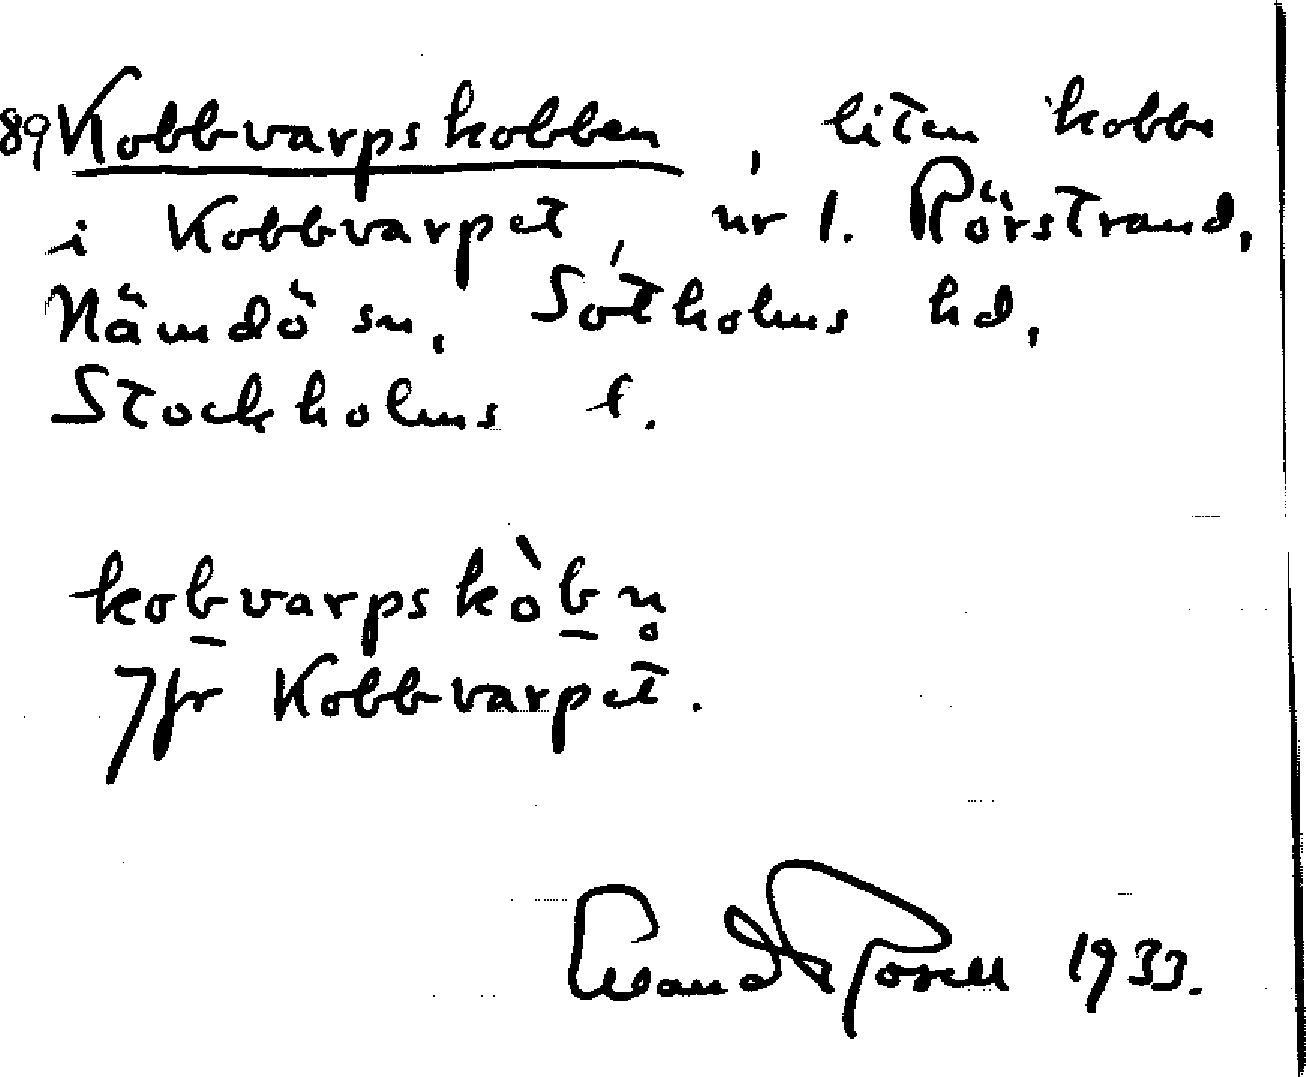 89 Kobbvarpskobben, liten kobbe
i Kobbvarpet, nr 1. Rörstrand,
Nämdö sn, Sotholms hd,
Stockholms l.
kobvarpskòbn̥
Jfr Kobbvarpet.
Erland Rosell 1933.